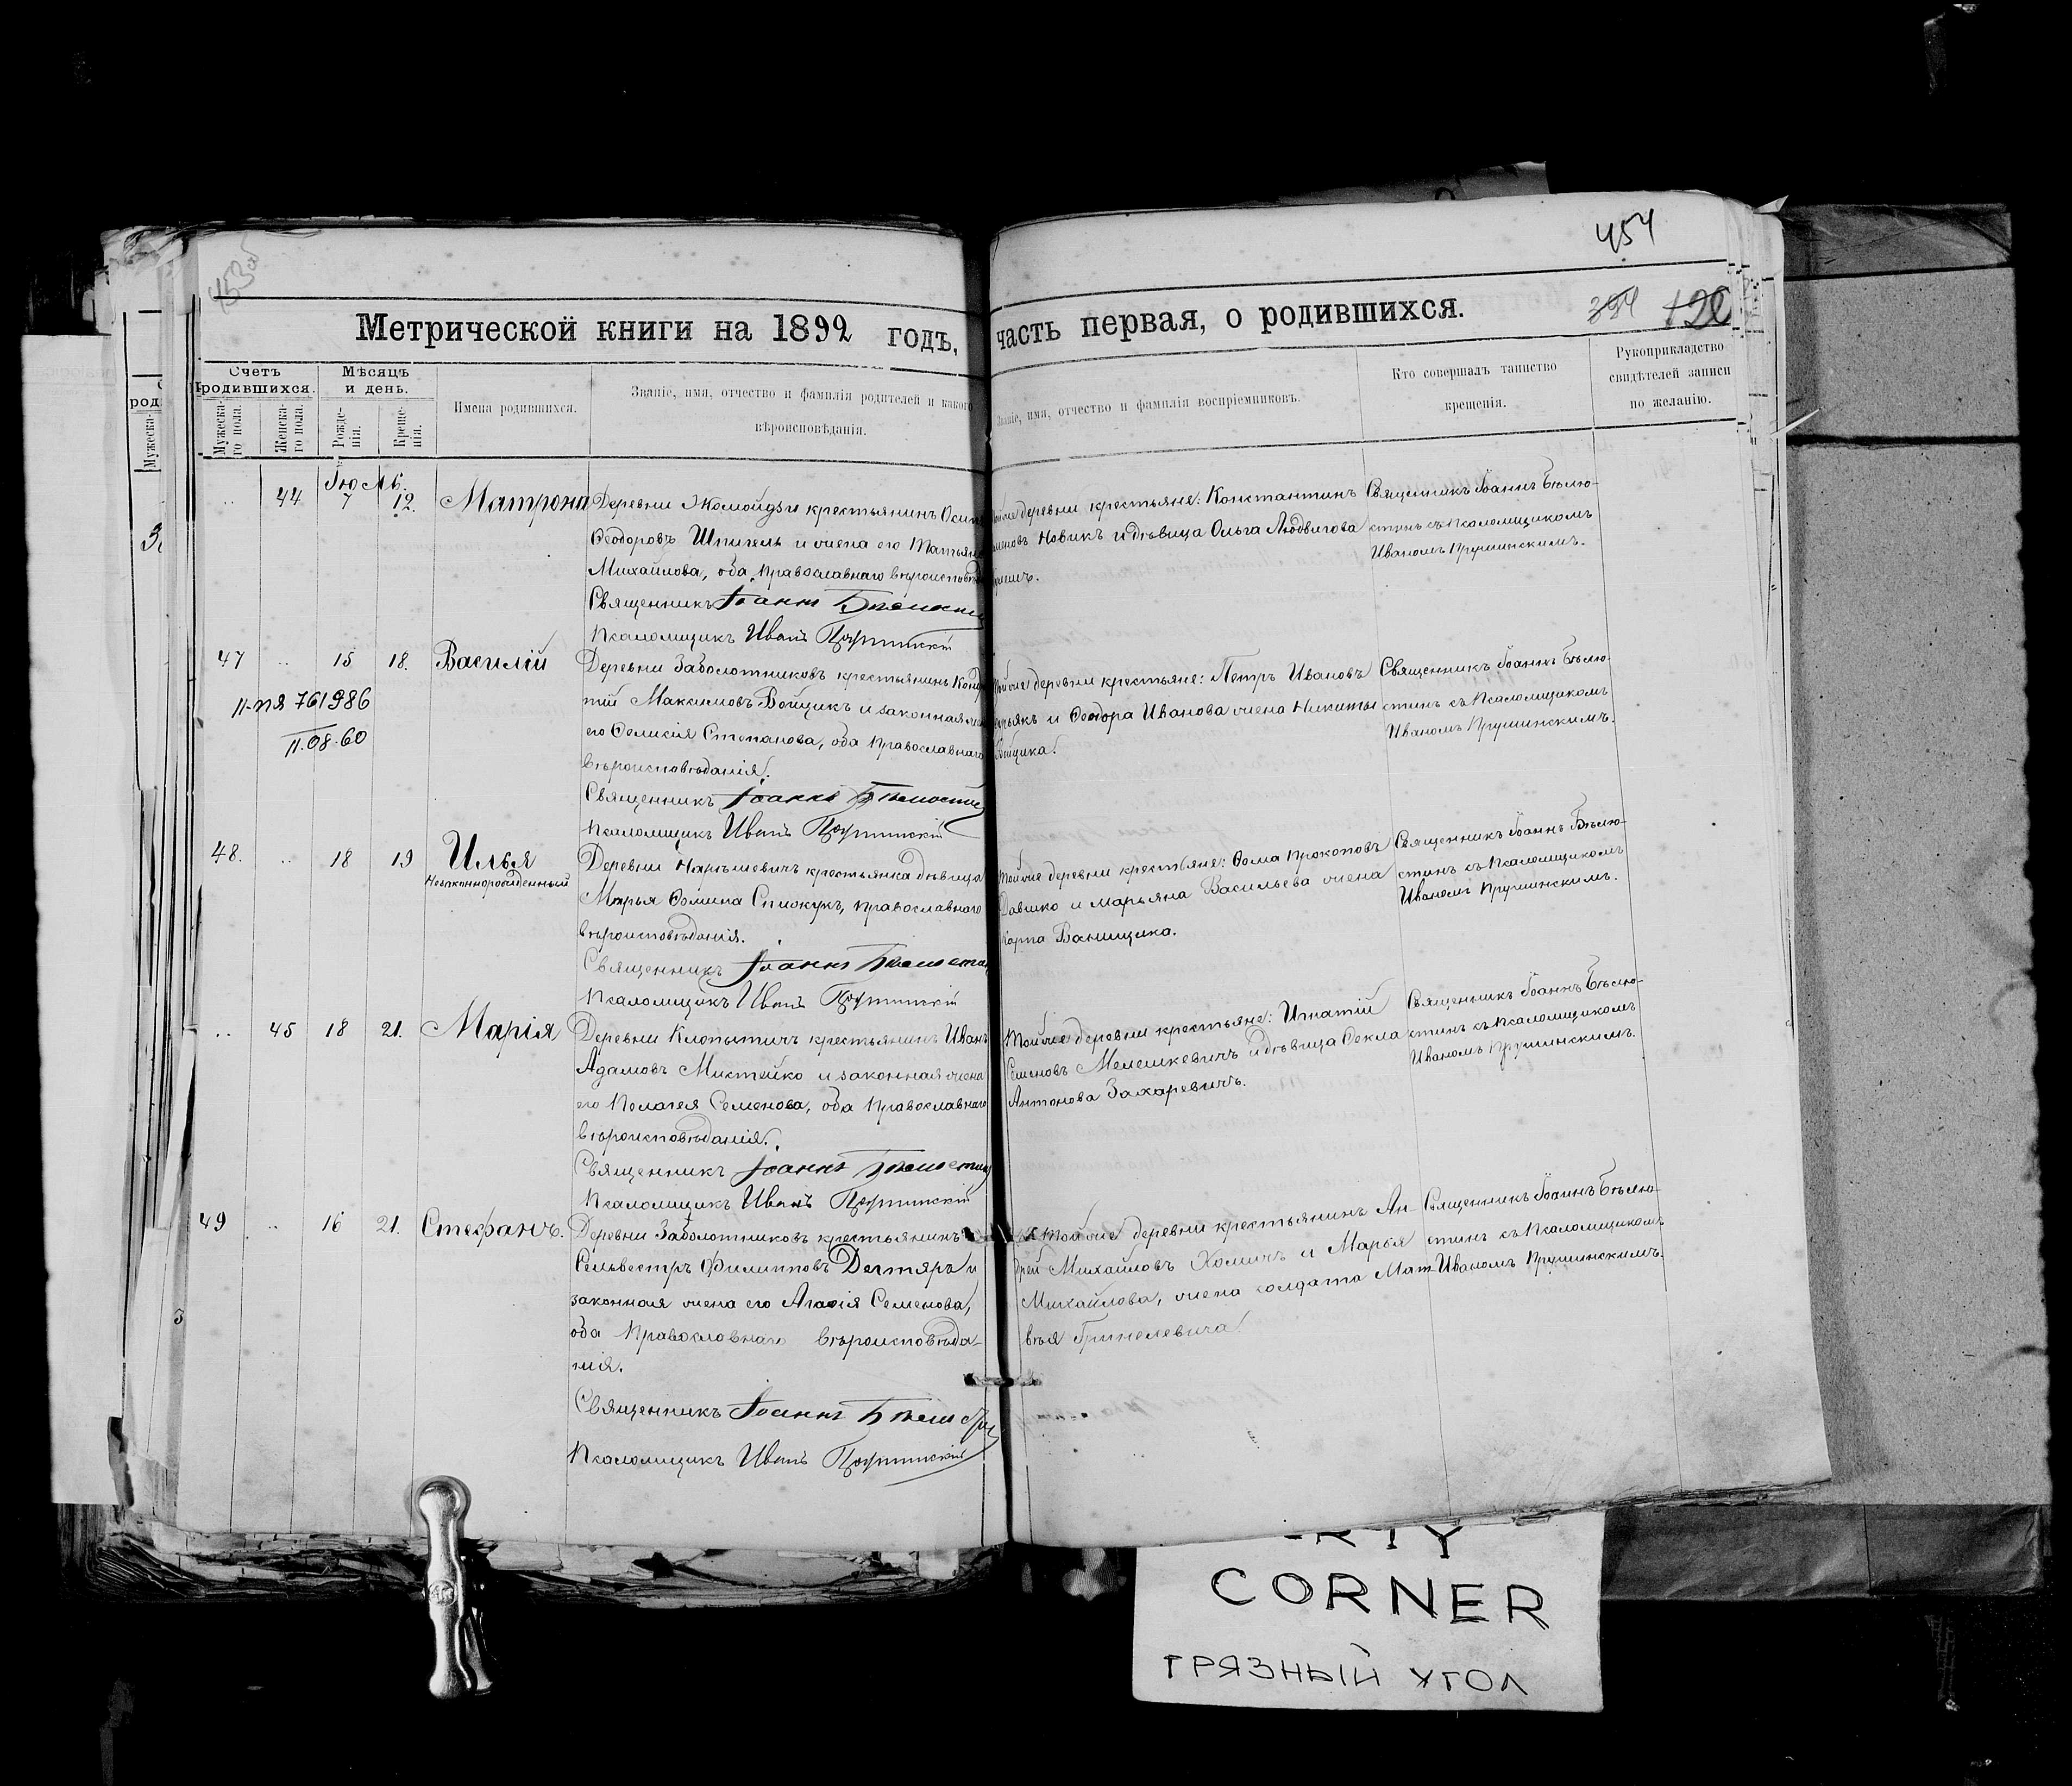 454
453об
Метрической книги на 1892 годъ, часть первая, о родившихся.
394 120
Счетъ родившихся.
Мѣсяцъ и день.
Мужеска-го пола.
Женска-го пола.
Рожде-нія.
Креще-нія.
Имена родившихся.
Званіе, имя, отчество и фамилія родителей и какого
вѣроисповѣданія.
Званіе, имя, отчество и фамилія воспріемниковъ.
Кто совершалъ таинство
крещенія.
Рукоприкладство
свидѣтелей записи
по желанію.
Іюль.
44 7 12. Матрона
Деревни Жомойдзи крестьянинъ Осипъ
Ѳеодоровъ Шпигель и жена его Татьяна
Михайлова, оба православнаго
Священникъ Іоаннъ Бѣлюстинъ
Псаломщикъ Иванъ Прушинскій
деревни крестьяне: Константинъ
Новикъ и дѣвица Ольга Людвигова
Священникъ Іоаннъ Бѣлю-
стинъ съ псаломщикомъ
Иваномъ Прушинскимъ.
47 15 18. Василій
II-ПЯ 761986
11.08.60
Деревни Заболотниковъ крестьянинъ
тій Максимовъ Бойщикъ и законная
его Степанова, оба православнаго
вѣроисповѣданія.
Священникъ Іоаннъ Бѣлюстинъ
Псаломщикъ Иванъ Прушинскій
Той же деревни крестьяне: Петръ Ивановъ
и Ѳеодора Иванова жена Никиты
Священникъ Іоаннъ Бѣлю-
стинъ съ псаломщикомъ
Иваномъ Прушинскимъ.
48. 18 19 Илья
Незаконнорожденный
Деревни крестьянка дѣвица
Марья Ѳомина православнаго
вѣроисповѣданія.
Священникъ Іоаннъ Бѣлюстинъ
Псаломщикъ Иванъ Прушинскій
Той же деревни крестьяне: Ѳома Прокоповъ
и Марьяна Васильева жена
Карпа Банищика.
Священникъ Іоаннъ Бѣлю-
стинъ съ псаломщикомъ
Иваномъ Прушинскимъ.
45 18 21. Марія
Деревни Клопытичъ крестьянинъ Иванъ
Адамовъ Мистейко и законная жена
его Пелагея Семенова, оба православнаго
вѣроисповѣданія.
Священникъ Іоаннъ Бѣлюстинъ
Псаломщикъ Иванъ Прушинскій
Той же деревни крестьяне: Игнатій
Семеновъ Мелешкевичъ и дѣвица Ѳекла
Антонова Захаревичъ.
Священникъ Іоаннъ Бѣлю-
стинъ съ псаломщикомъ
Иваномъ Прушинскимъ.
49 16 21. Стефанъ.
Деревни Заболотниковъ крестьянинъ
Сельвестръ Филипповъ Дегтяръ и
законная жена его Агаѳія Семенова,
оба православнаго вѣроисповѣда-
нія.
Священникъ Іоаннъ Бѣлюстинъ
Псаломщикъ Иванъ Прушинскій
Той же деревни крестьянинъ Ан-
дрей Михайловъ Хомичъ и Марья
Михайлова, жена солдата Мат-
вѣя Гринелевича.
Священникъ Іоаннъ Бѣлю-
стинъ съ псаломщикомъ
Иваномъ Прушинскимъ.
CORNER
ГРЯЗНЫЙ УГОЛ